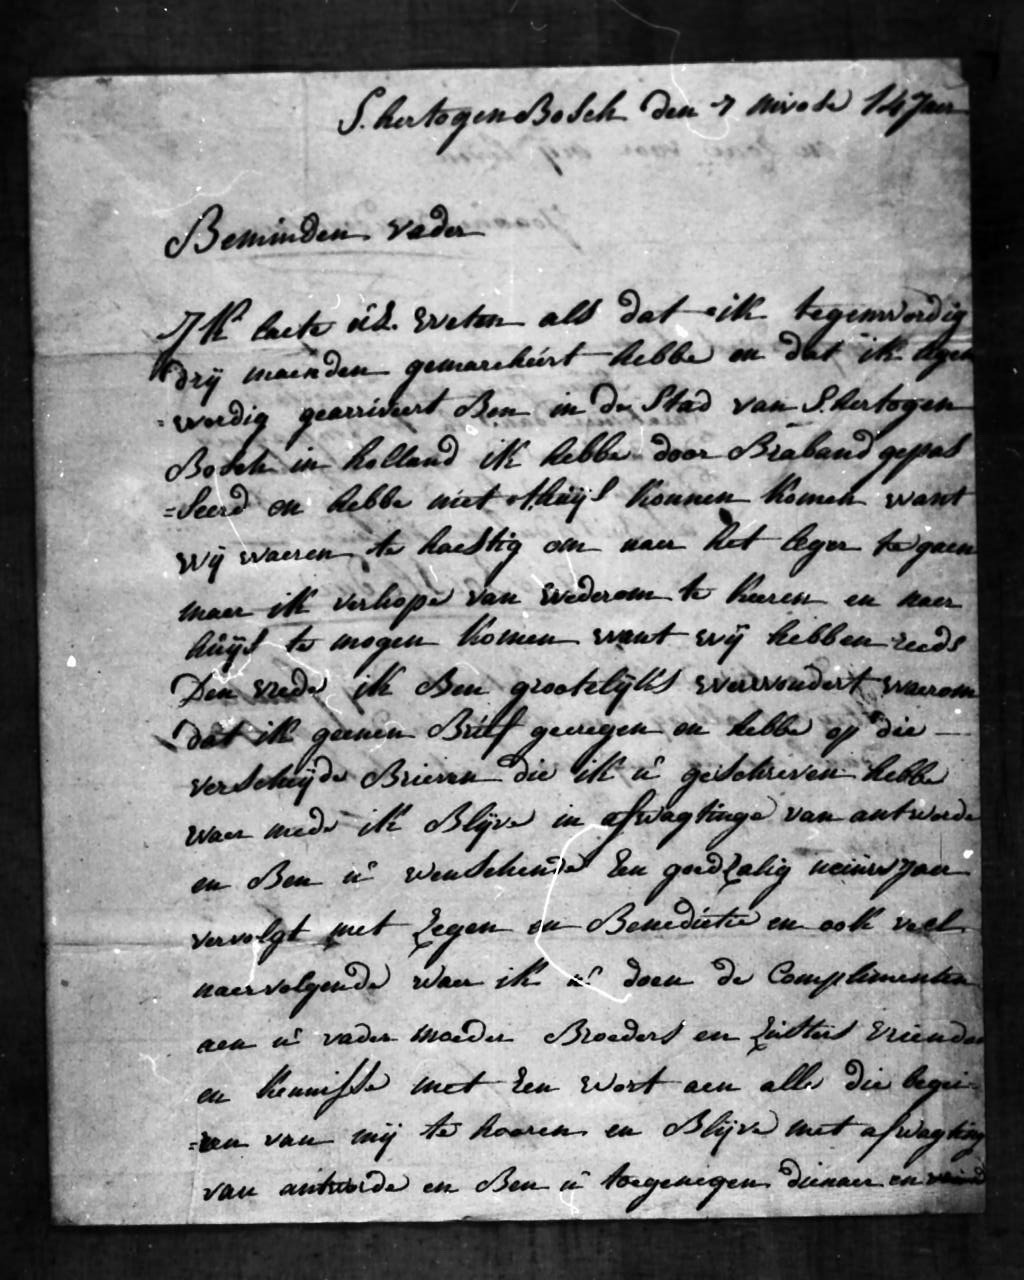 S.hertogen Bosch den 7 nivose 14 Jaer
Beminden vader
Ik laete ul. weten als dat ik tegenwordig
drij maenden gemarcheert hebbe en dat ik tegen
=wordig gearriveert Ben in de Stad van S.hertogen
Bosch in holland ik hebbe door Braband gepas
=Seerd en hebbe niet thuijs konnen komen want
wij waeren te haestig om naer het leger te gaen
maer ik verhope van wederom te keeren en naer
huijs te mogen komen want wij hebben reeds
Den vrede ik Ben grootelijks verwondert waerom
dat ik geenen Brief gecregen en hebbe op die
verscheijde Brieven die ik u geschreven hebbe
waer mede ik Blijve in afwagtinge van antworde
en Ben u wenschende Een goed zalig nieuwjaer
vervolgt met zegen en Benedictie en ook veel
naervolgende waer ik u doen de Complimenten
aen u vader moeder Broeders en zusters vrienden
en kennisse met Een wort aen alle die begee
=ren van mij te hooren en Blijve met afwagting
van antworde en Ben u toegenegen dienaer en